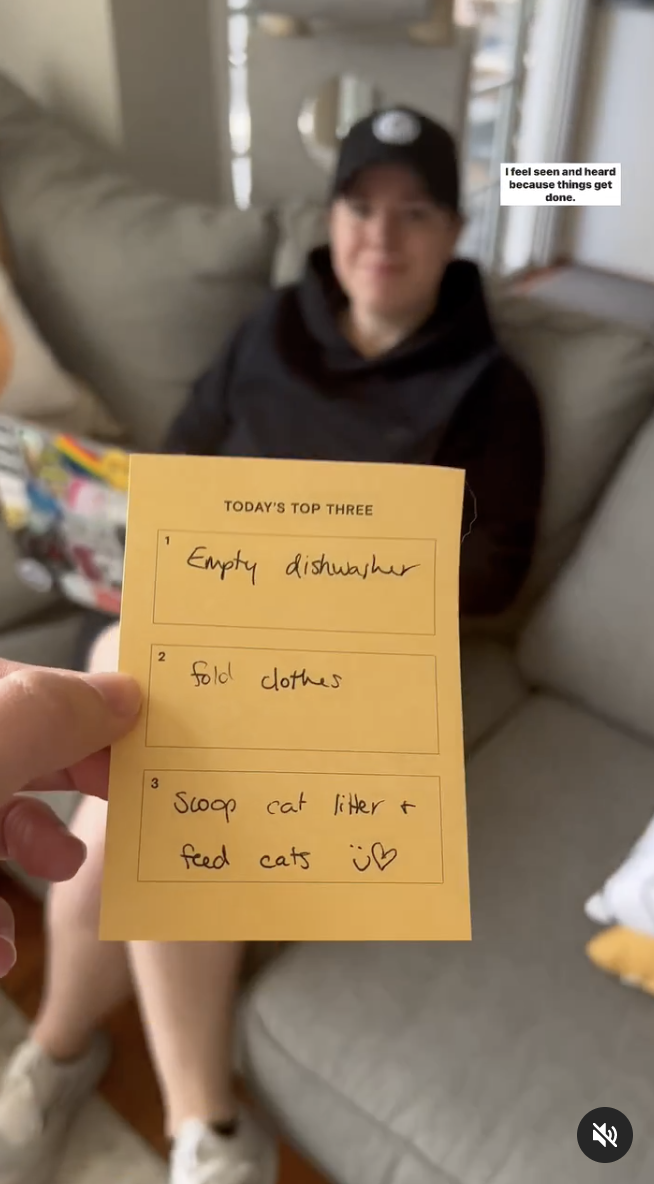 I feel seen and heard
because things get
done.
TODAY'S TOP THREE
1
Empty dishwasher
2
fold clothes
3
Scoop cat litter +
feed cats ü♡